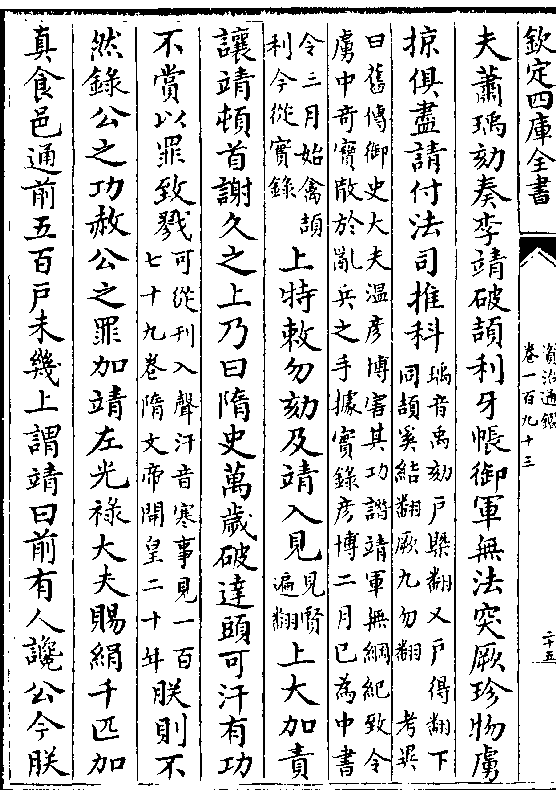 欽定四庫全書
資治通鑑
卷一百九十三
二十五
夫蕭瑀劾奏李靖破頡利牙帳御軍無法突厥珍物虜
掠俱盡請付法司推科瑀音禹劾戸槩翻又戸得翻下
同頡奚結翻厥九勿翻 考異
曰舊傳御史大夫溫彦博害其功譖靖軍無綱紀致令
虜中竒寳散於亂兵之手據實録彦博二月已為中書
令三月始禽頡
利今從實錄上特敕勿劾及靖入見見賢
遍翻上大加責
讓靖頓首謝久之上乃曰隋史萬歲破達頭可汗有功
不賞以罪致戮可從刋入聲汗音寒事見一百
七十九卷隋文帝開皇二十年朕則不
然錄公之功赦公之罪加靖左光祿大夫賜絹千匹加
真食邑通前五百戸未幾上謂靖曰前有人讒公今朕